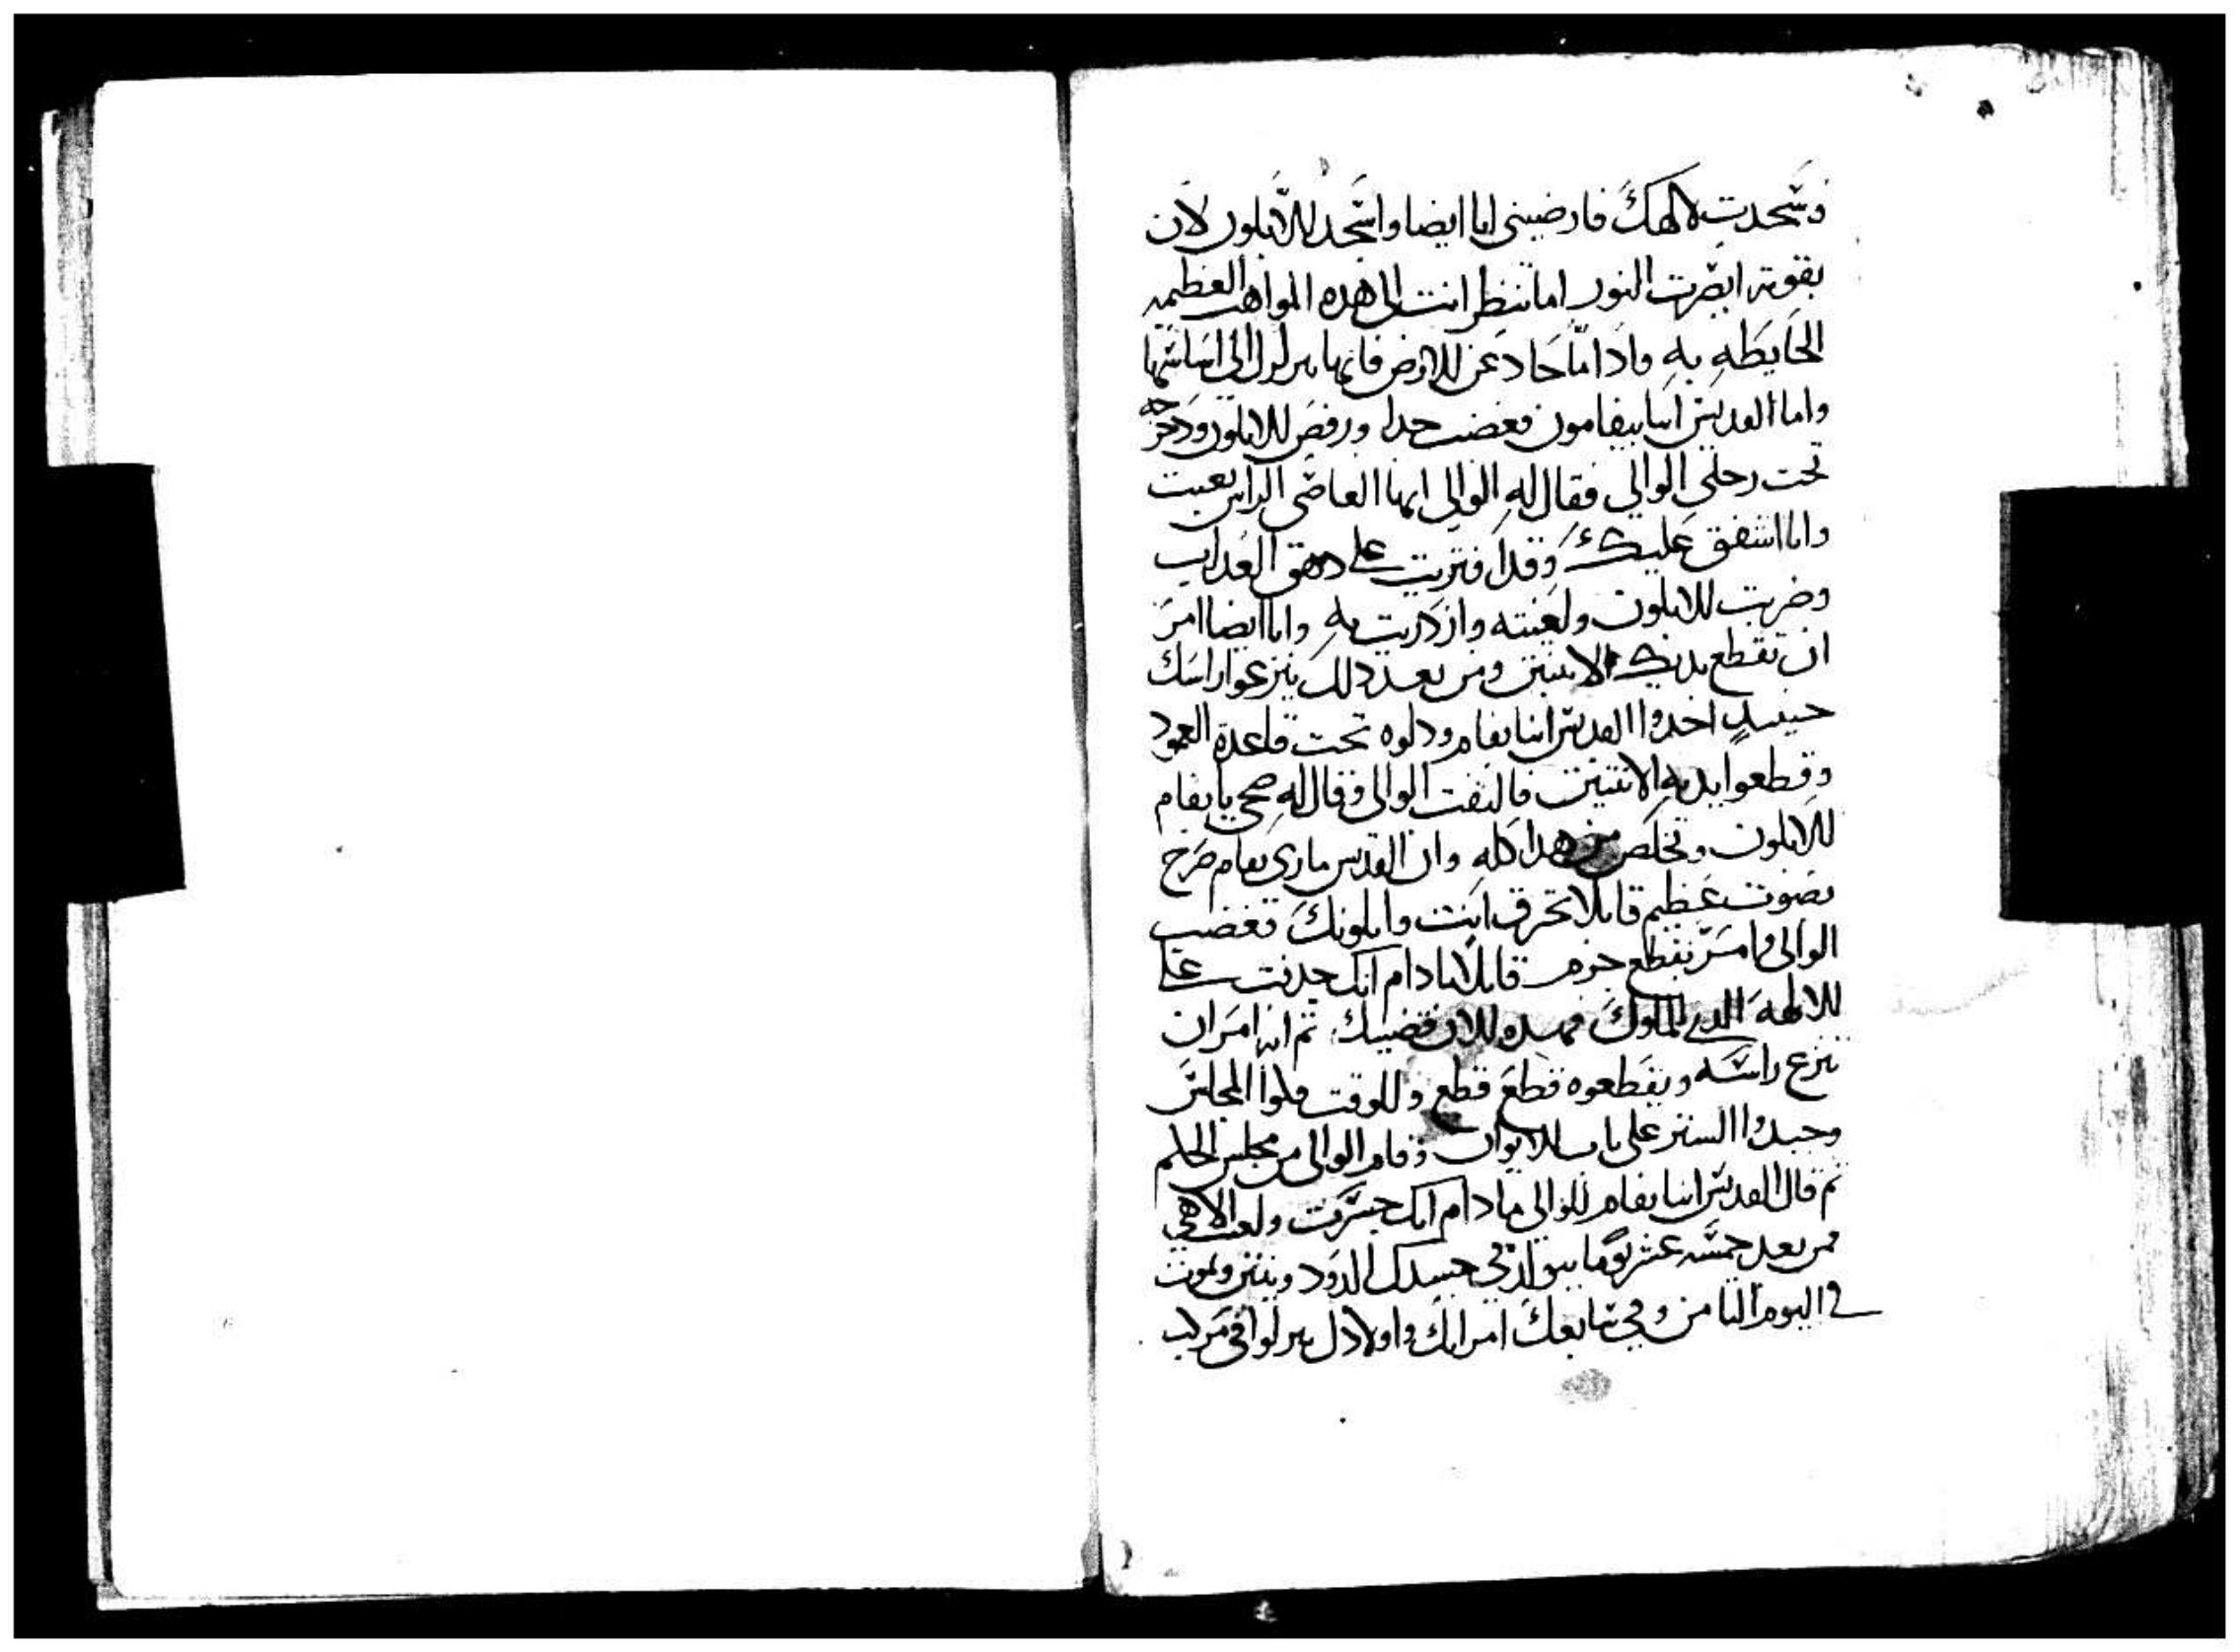 وسَجدت لالهك فارضينى انا ايضا واسَجد للابلون لان
بقوته ابصرت النور اما تنظر انت الى هده المواهب العظيمه
الحَايطه به وادا ما حَاد عن الارض فانها تتزلزل الى اساسَها
واما القديس انبا بيفامون فغضب جدا ورفص الابلون ودحرجه
تحت رجلي الوالي فقال له الوالى ايها القاصَي الراس تعبت
وانا اشفق عَليك وقد افتريت على دهق العَداب
وضربت الابلون ولعَنته وازدريت به وانا ايضا امرَ
ان تقطع يديك الاتنتين ومن بعد دلك ينزعوا راسَك
حينيدٍ اخدوا القديسَ انبا بفام ودلوه تحت قاعدة العمود
وقطعوا يديه الاتنتين فالتفت الوالى وقال له صحي يا بفام
للابلون وتخلص من هدا كله وان القديس مارى بفام صَرخ
بصَوت عَظيم قايلا تحرق انت وابلونك فغضب
الوالى وامَر بقطع حزم قايلا مادام انك جدفت على
الالهة الدى للملوك فهده الان قضيتك ثم انه امَر ان
تنزع راسَه ويقطعوه قطعَ قطع وللوقت حلوا المجلسَ
وجبدوا الستر على باب الايوان وقام الوالى من مجلس الحكم
ثم قال القديسَ انبا بفام للوالى مادام انك جسَرت ولعنت الاهي
فمن بعد خمسَه عشر يومًا يتولد في جسدك الدود وينتن وتموت
في اليوم التامن وفي سَابعك امراتك واولادك ينزلوا في مَركب